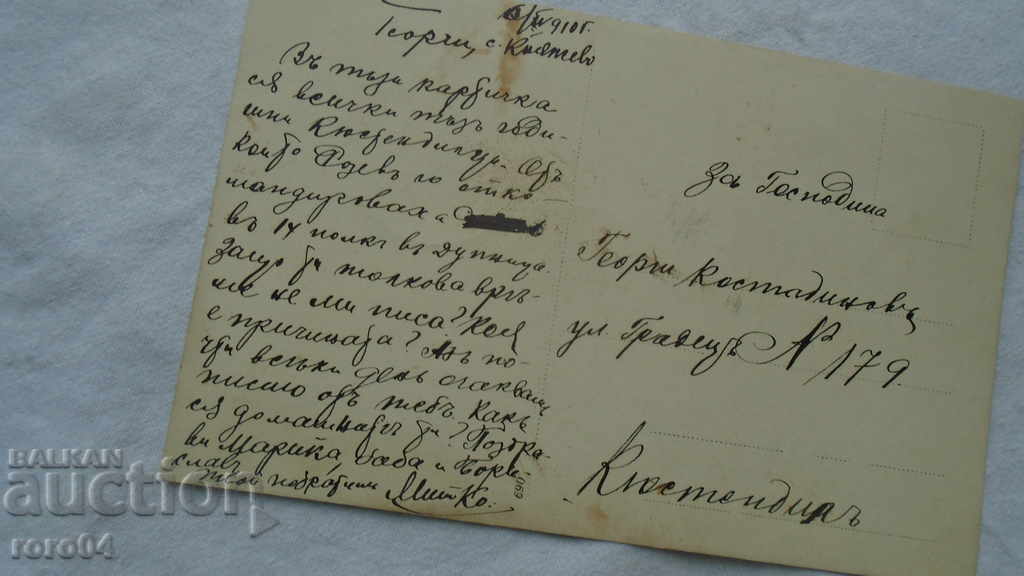 6/IV 910 г.
Георги, с. Княжево
Въ тъзи картичка
сѫ всички тъзъ годи-
шни Кюстендилци. Отъ
които Ѳ го отко-
мандироваха
въ 14 полкъ въ Дупница.
Защо ти толкова врѣ-
ме не ми писа? Коя
е причината? Азъ по-
чти всѣки день очаквамъ
писмо отъ тебъ. Какъ
сѫ домашнитѣ ти? Поздра-
ви Марийка, баба и Бори-
славъ.
Твой побратимъ Митко.
За Господина
Георги Костадиновъ
ул. Гравецъ № 179.
Кюстендилъ
069
BALKAN
auction
roro04